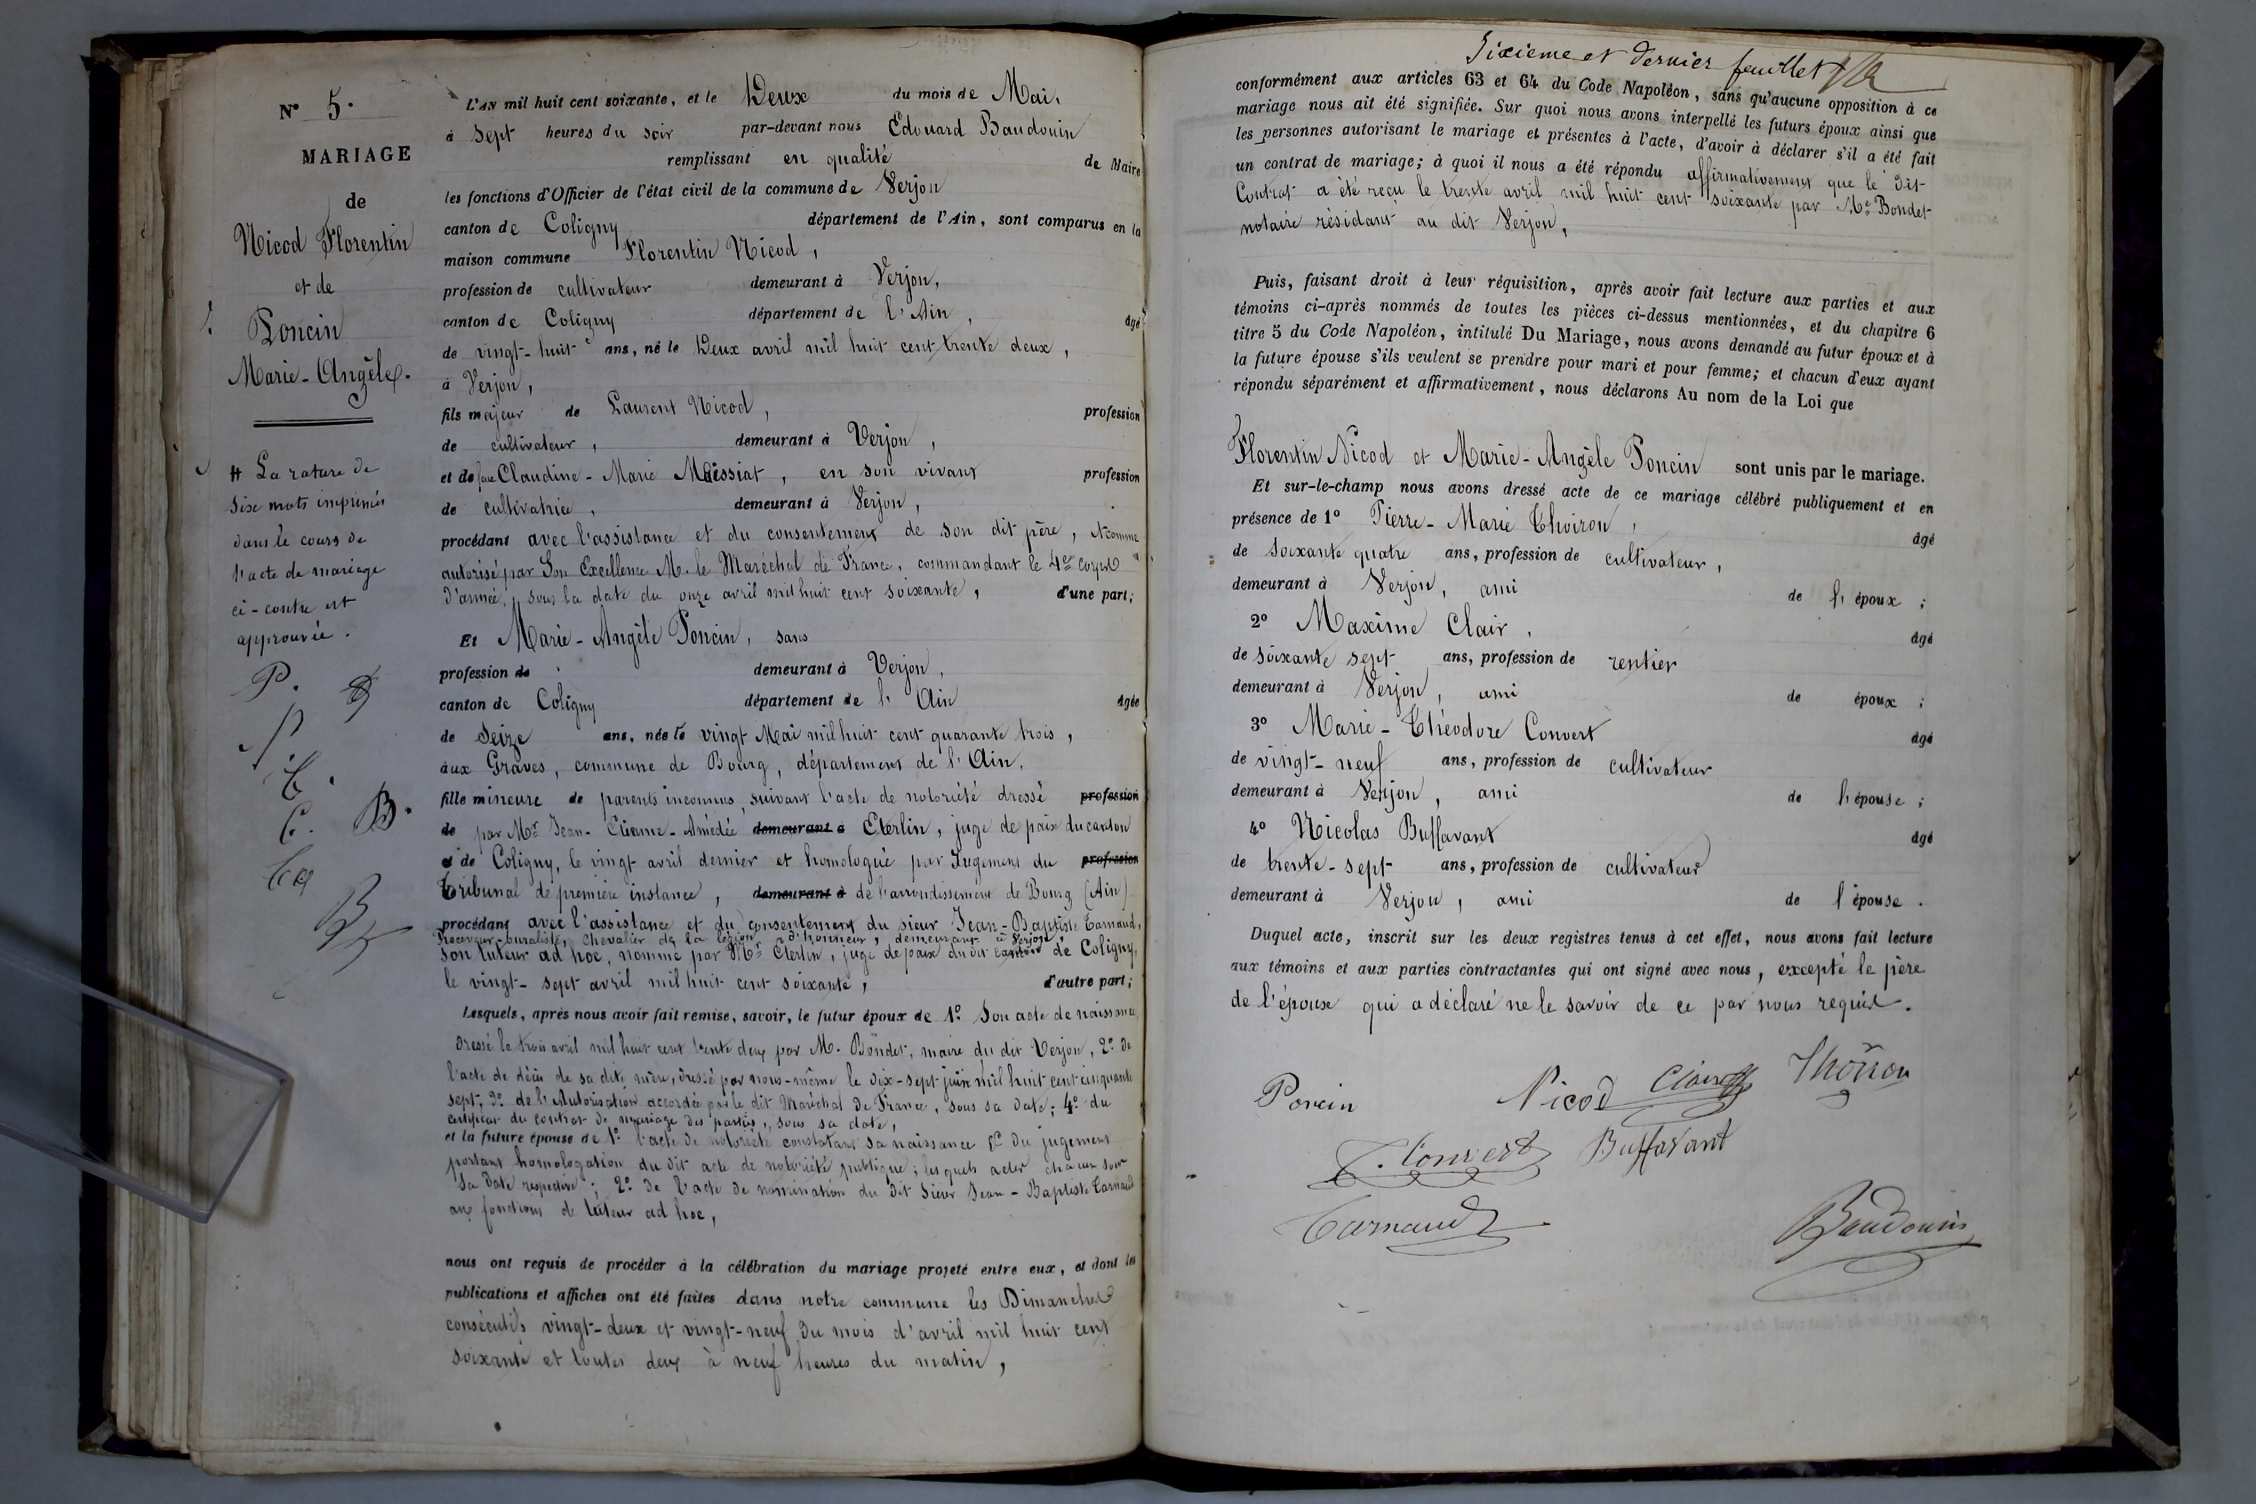 N° 5.
MARIAGE
de
Nicod Florentin
et de
Poncin
Marie-Angèle.
# La rature de
six mots imprimés
dans le cours de
l'acte de mariage
ci-contre est
approuvée.
P.
C.
B.
L'AN mil huit cent soixante, et le Deux du mois de Mai,
à Sept heures du soir par-devant nous Edouard Baudouin
remplissant en qualité de Maire
les fonctions d'Officier de l'état civil de la commune de Verjon
canton de Coligny département de l'Ain, sont comparus en la
maison commune Florentin Nicod,
profession de cultivateur demeurant à Verjon,
canton de Coligny département de l'Ain, âgé
de vingt-huit ans, né le Deux avril mil huit cent trente deux,
à Verjon,
fils majeur de Laurent Nicod, profession
de cultivateur, demeurant à Verjon,
et de feue Claudine-Marie Messiat, en son vivant profession
de cultivatrice, demeurant à Verjon,
procédant avec l'assistance et du consentement de son dit père, et comme
autorisé par Son Excellence M. le Maréchal de France, commandant le 4e corps
d'armée, sous la date du onze avril mil huit cent soixante, d'une part;
Et Marie-Angèle Poncin, sans
profession de demeurant à Verjon,
canton de Coligny département de l'Ain âgée
de Seize ans, née le vingt Mai mil huit cent quarante trois,
aux Graves, commune de Bourg, département de l'Ain,
fille mineure de parents inconnus, suivant l'acte de notoriété dressé profession
de par Mr Jean-Etienne-Amédée demeurant à Clerlin, juge de paix du canton
de Coligny, le vingt avril dernier et homologué par Jugement du profession
Tribunal de première instance, demeurant à de l'arrondissement de Bourg (Ain)
procédant avec l'assistance et du consentement du sieur Jean-Baptiste Carnaud,
Receveur-buraliste, chevalier de la légion d'honneur, demeurant à Verjon,
son tuteur ad hoc, nommé par Mr Clerlin, juge de paix du dit canton de Coligny,
le vingt-sept avril mil huit cent soixante, d'autre part;
Lesquels, après nous avoir fait remise, savoir, le futur époux de 1° Son acte de naissance
dressé le trois avril mil huit cent trente deux par M. Bondet, maire du dit Verjon, 2° de
l'acte de décès de sa dite mère, dressé par nous-même le dix-sept juin mil huit cent cinquante
sept, 3° de l'Autorisation accordée par le dit Maréchal de France, sous sa date; 4° du
certificat du contrat de mariage des parties, sous sa date,
et la future épouse de 1° l'acte de notoriété constatant sa naissance & du jugement
portant homologation du dit acte de notoriété publique; lesquels actes chacun sous
sa date respective; 2° de l'acte de nomination du dit sieur Jean-Baptiste Carnaud
aux fonctions de tuteur ad hoc,
nous ont requis de procéder à la célébration du mariage projeté entre eux, et dont les
publications et affiches ont été faites dans notre commune les Dimanches
consécutifs vingt-deux et vingt-neuf du mois d'avril mil huit cent
soixante et toutes deux à neuf heures du matin,
Sixième et dernier feuillet
conformément aux articles 63 et 64 du Code Napoléon, sans qu'aucune opposition à ce
mariage nous ait été signifiée. Sur quoi nous avons interpellé les futurs époux ainsi que
les personnes autorisant le mariage et présentes à l'acte, d'avoir à déclarer s'il a été fait
un contrat de mariage; à quoi il nous a été répondu affirmativement que le dit
Contrat a été reçu le trente avril mil huit cent soixante par Me Bondet
notaire résidant au dit Verjon,
Puis, faisant droit à leur réquisition, après avoir fait lecture aux parties et aux
témoins ci-après nommés de toutes les pièces ci-dessus mentionnées, et du chapitre 6
titre 5 du Code Napoléon, intitulé Du Mariage, nous avons demandé au futur époux et à
la future épouse s'ils veulent se prendre pour mari et pour femme; et chacun d'eux ayant
répondu séparément et affirmativement, nous déclarons Au nom de la Loi que
Florentin Nicod et Marie-Angèle Poncin sont unis par le mariage.
Et sur-le-champ nous avons dressé acte de ce mariage célébré publiquement et en
présence de 1° Pierre-Marie Thoiron, âgé
de soixante quatre ans, profession de cultivateur,
demeurant à Verjon, ami de l'époux;
2° Maxime Clair, âgé
de soixante sept ans, profession de rentier
demeurant à Verjon, ami de époux;
3° Marie-Théodore Convert âgé
de vingt-neuf ans, profession de cultivateur
demeurant à Verjon, ami de l'épouse;
4° Nicolas Buffavant âgé
de trente-sept ans, profession de cultivateur
demeurant à Verjon, ami de l'épouse.
Duquel acte, inscrit sur les deux registres tenus à cet effet, nous avons fait lecture
aux témoins et aux parties contractantes qui ont signé avec nous, excepté le père
de l'époux qui a déclaré ne le savoir de ce par nous requis.
Poncin Nicod Clair Thoiron
T. Convert Buffavant
Carnaud Baudouin